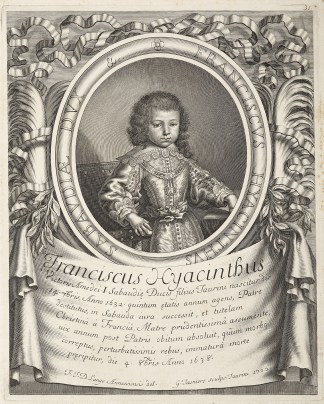 FRANCISCUS HYACINTHUS SABAUDIÆ DUX
Franciscus Hyacinthus
Victoris Amedei I Sabaudiæ Ducis filius Taurini nascitur die
14 7bris Anno 1632 quintum ætatis annum agens, Patre
destitutus, in Sabauda iura successit, et tutelam
Christinæ a Francia, Matre prudentissimâ assumente,
uix annum post Patris obitum absoluit, quum morbo
correptus, perturbatissimis rebus, immaturâ morte
præripitur, die 4 8bris Anno 1638.
del.
sculpsit Taurini